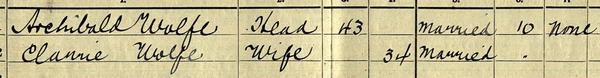 Archibald Wolfe Head 43 Married 10 None
Clarrie Wolfe Wife 34 Married .